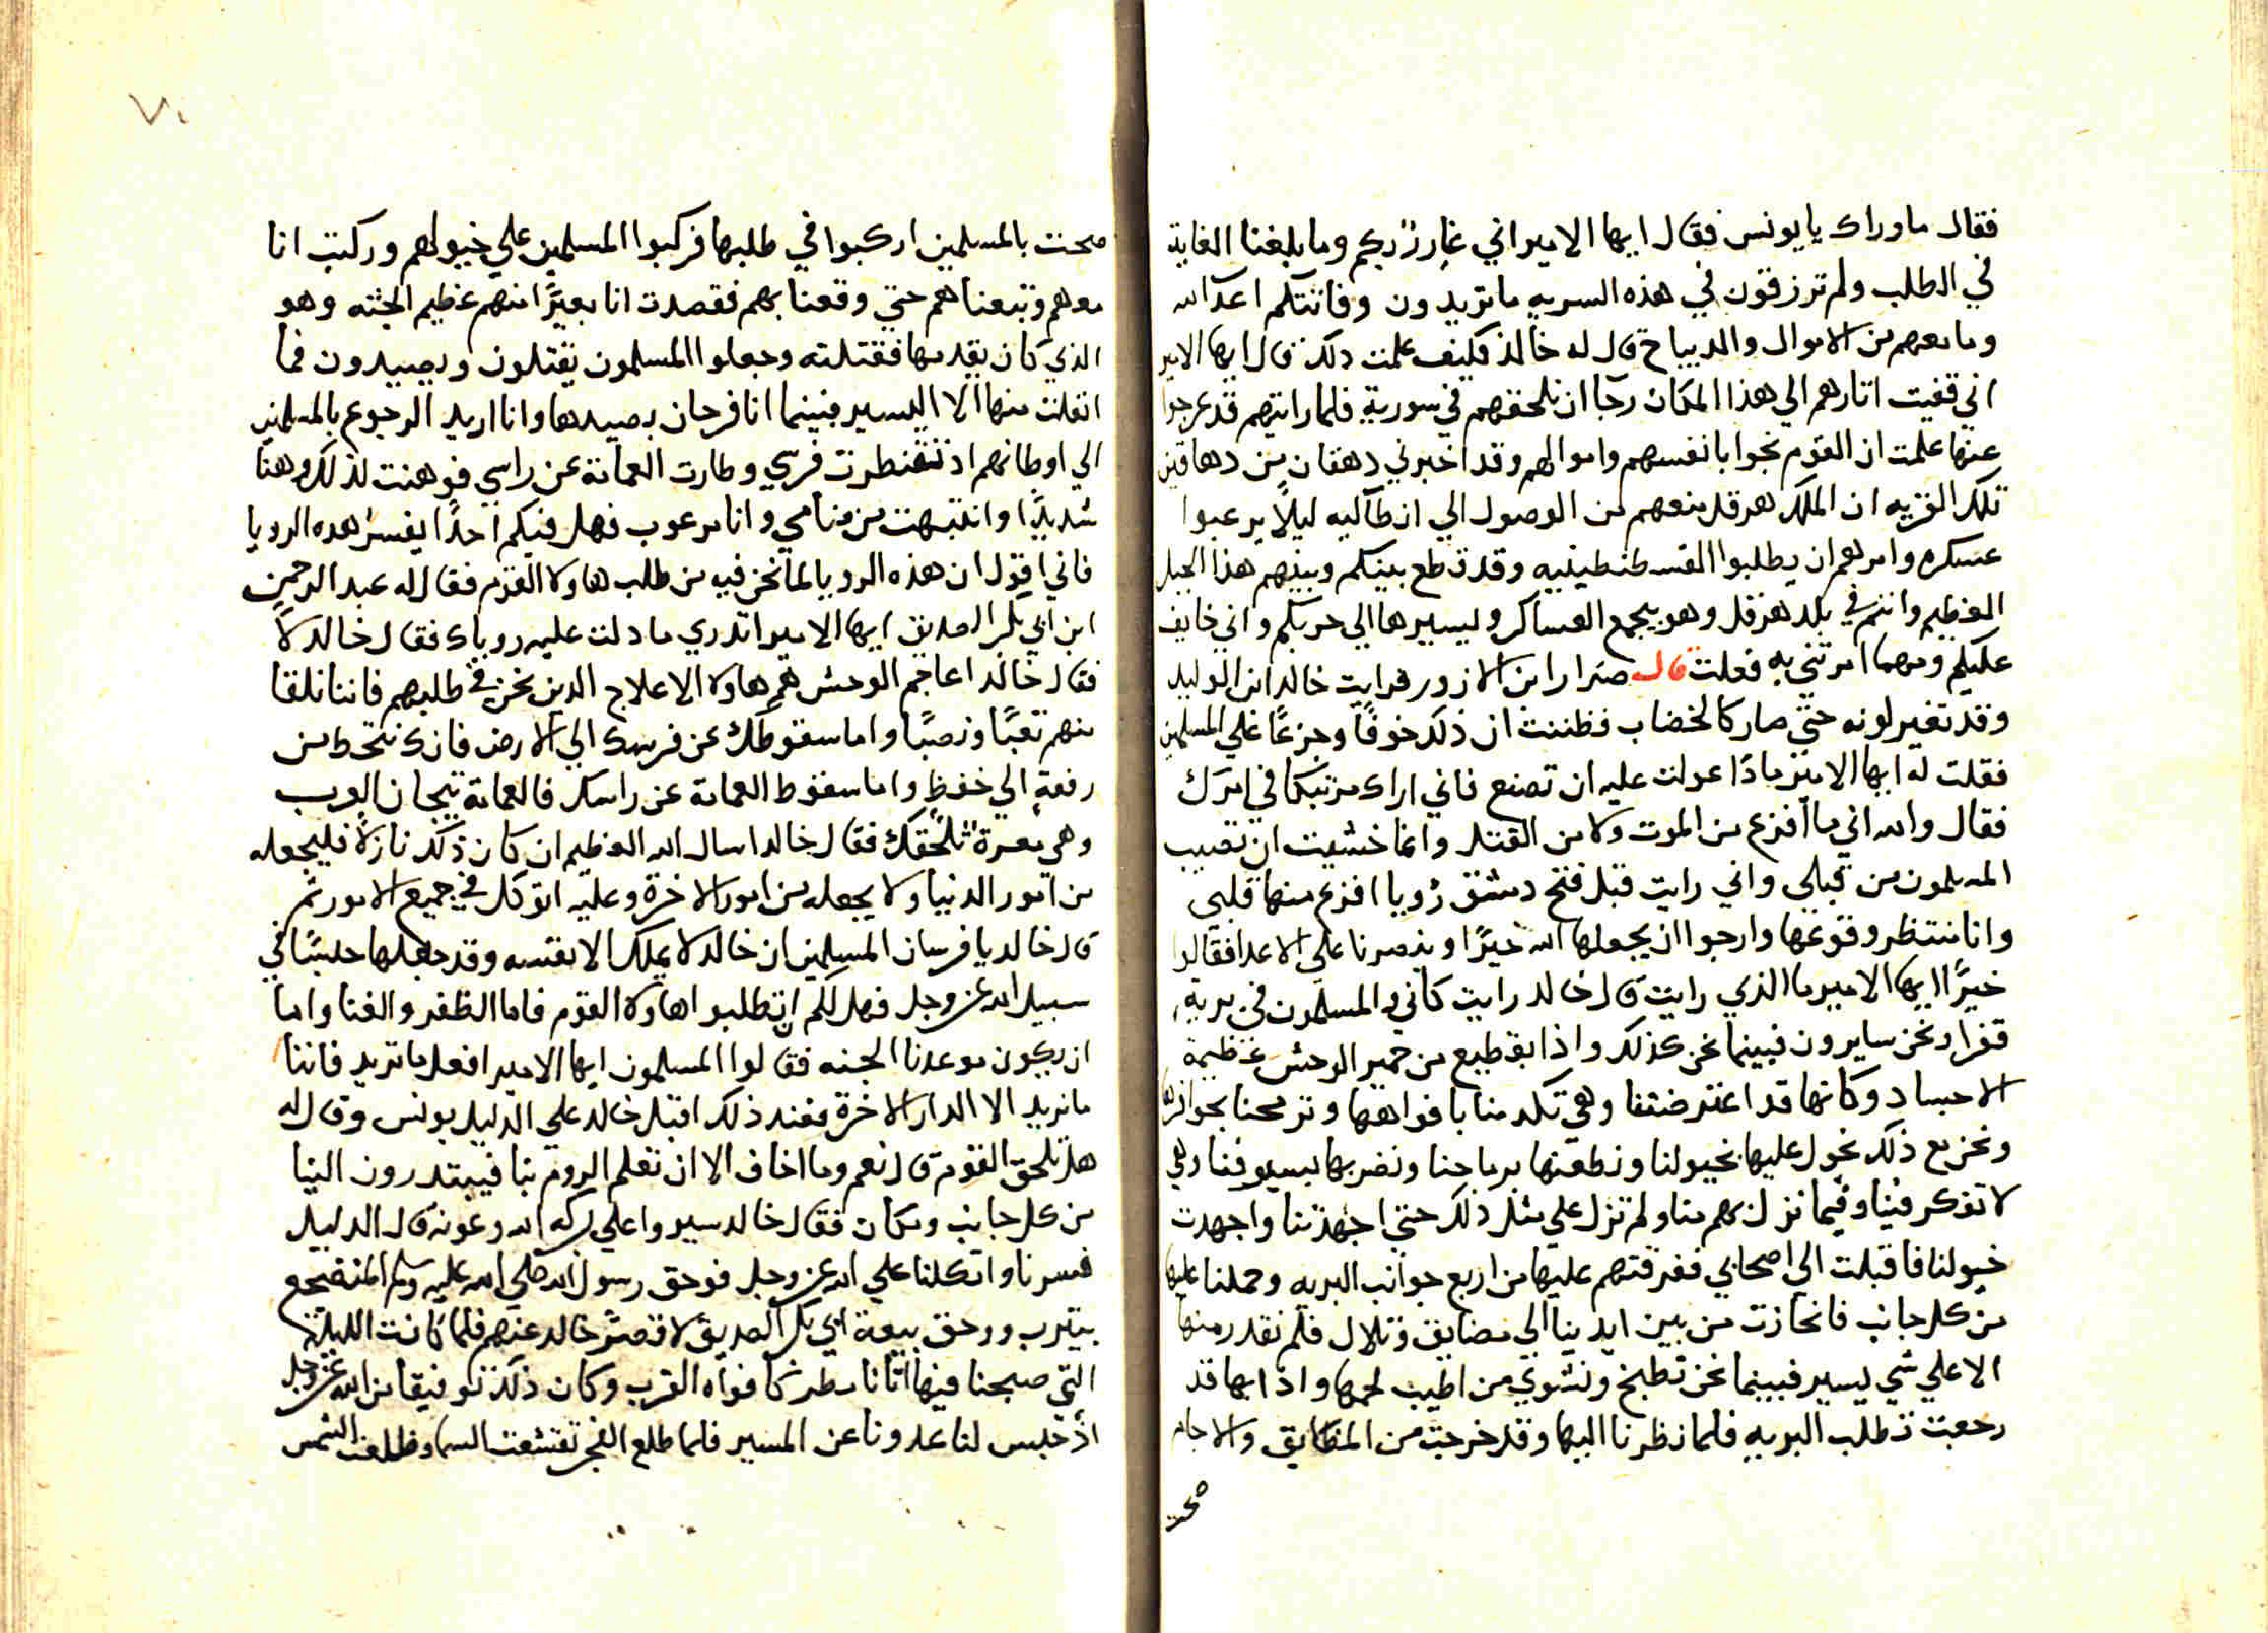 فقال ما وراك يا يونس فقال ايها الامير اني غارر بكم وما بلغنا الغاية
في الطلب ولم ترزقون في هذه السريه ما تريدون وفاتتكم اعدا الله
وما معهم من الاموال والديباج قال له خالد فكيف علمت ذلك قال ايها الامير
اني قفيت اثارهم الي هذا المكان رجآ ان نلحقهم في سورية فلما رايتهم قد عرجوا
عنها علمت ان القوم نجوا بانفسهم واموالهم وقد اخبرني دهقان من دهاقين
تلك القريه ان الملك هرقل منعهم من الوصول الي انطاكيه ليلا يرعبوا
عسكره وامرهم ان يطلبوا القسطنطينيه وقد قطع بينكم وبينهم هذا الجبل
العظيم وانتم في بلد هرقل وهو يجمع العساكر ويسيرها الي حربكم واني خايف
عليكم ومهما امرتني به فعلت قال ضرار ابن الازور فرايت خالد ابن الوليد
وقد تغير لونه حتي صار كالخضاب فظننت ان ذلك خوفًا وجزعًا علي المسلمين
فقلت له ايها الامير ماذا عولت عليه ان تصنع فاني اراك مرتبكا في امرك
فقال والله اني ما أفزع من الموت ولا من القتل وانما خشيت ان تصيب
المسلمون من قبلي واني رايت قبل فتح دمشق رويا افزع منها قلبي
وانا منتظر وقوعها وارجوا ان يجعلها الله خيرًا وينصرنا علي الاعدا فقالوا
خيرًا ايها الامير ما الذي رايت قال خالد رايت كاني والمسلمون في برية
قفرا ونحن سايرون فبينما نحن كذلك واذا بقطيع من حمير الوحش عظيمة
الاجساد وكانها قد اعترضتنا وهي تكدمنا بافواهها وترمحنا بحوافرها
ونحن مع ذلك نحول عليها بخيولنا ونطعنها برماحنا ونضربها بسيوفنا وهي
لا تفكر فينا وفيما نزل بهم منا ولم نزل علي مثل ذلك حتي اجهدتنا واجهدت
خيولنا فاقبلت الي اصحابي ففرقتهم عليها من اربع جوانب البريه وحملنا عليها
من كل جانب فانحازت من بين ايدينا الي مضايق وتلال فلم نقدر منها
الا علي شي يسير فبينما نحن نطبخ ونشوي من اطيب لحمها واذا بها قد
رجعت تطلب البريه فلما نظرنا اليها وقد خرجت من المضايق والاجام
صحت
٧٠
صحت بالمسلمين اركبوا في طلبها فركبوا المسلمين علي خيولهم وركبت انا
معهم وتبعناهم حتي وقعنا بهم فقصدت انا بعيرًا منهم عظيم الجثه وهو
الذي كان يقدمها فقتلته وجعلوا المسلمون يقتلون ويصيدون فما
انفلت منها الا اليسير فبينما انا فرحان بصيدها وانا اريد الرجوع بالمسلمين
الي اوطانهم اذ تقنطرت فرسي وطارت العمامة عن راسي فوهنت لذلك وهنا
شديدًا وانتبهت من منامي وانا مرعوب فهل فيكم احدًا يفسر هذه الرويا
فاني اقول ان هذه الرويا لما نحن فيه من طلب هاولا القوم فقال له عبد الرحمن
ابن ابي بكر الصديق ايها الامير اتدري ما دلت عليه روياك فقال خالد لا
فقال خالد اعاجم الوحش هم هاولا الاعلاج الدين نحن في طلبهم فاننا نلقا
منهم تعبًا ونصبًا واما سقوطك عن فرسك الي الارض فانك تنحط من
رفعة الي خفظ واما سقوط العمامة عن راسك فالعمامة تيجان العرب
وهي معرة تلحقك فقال خالد اسال الله العظيم ان كان ذلك نازلا فليجعله
من امور الدنيا ولا يجعله من امور الاخرة وعليه اتوكل في جميع الامور ثم
قال خالد يا فرسان المسلمين ان خالد لا يملك الا نفسه وقد جعلها حبيسًا في
سبيل الله عز وجل فهل لكم ان تطلبوا هاولا القوم فاما الظفر والغنا واما
ان يكون موعدنا الجنه فقالوا المسلمون ايها الامير افعل ما تريد فاننا
ما نريد الا الدار الاخرة فعند ذلك اقبل خالد علي الدليل يونس وقال له
هل تلحق القوم قال نعم وما اخاف الا ان تعلم الروم بنا فيبتدرون الينا
من كل جانب ومكان فقال خالد سيروا علي بركه الله وعونه قال الدليل
فسرنا واتكلنا علي الله عز وجل فوحق رسول الله صلي الله عليه وسلم المنضجع
بيترب ووحق بيعة ابي بكر الصديق لا قصر خالد عنهم فلما كانت الليلة
التي صبحنا فيها اتانا مطر كافواه القرب وكان ذلك توفيقا من الله عز وجل
اذ حبس لنا عدونا عن المسير فلما طلع الفجر تقشعت السما وطلعت الشمس